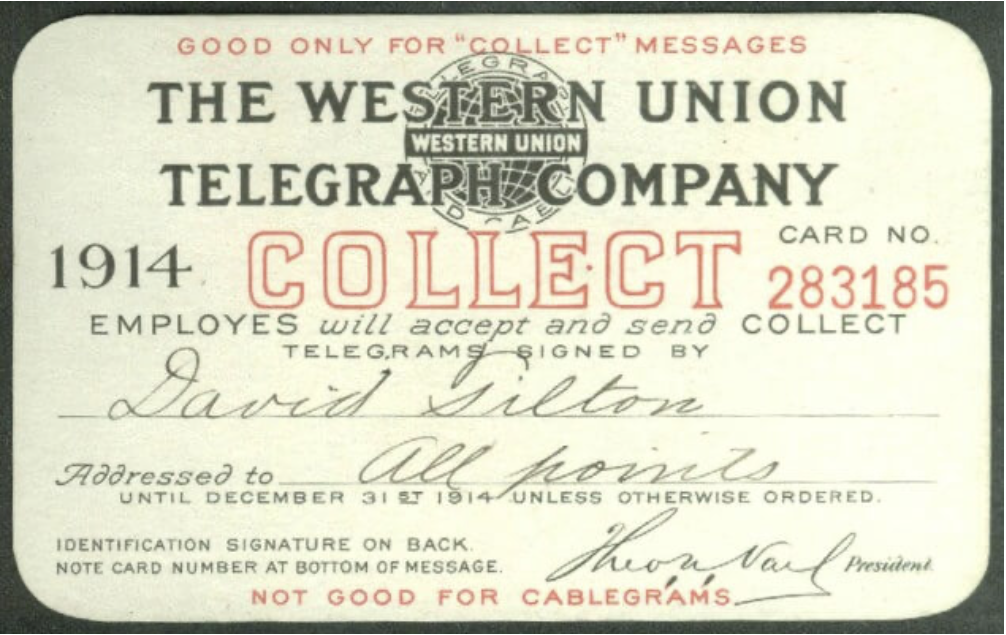 GOOD ONLY FOR "COLLECT" MESSAGES
THE WESTERN UNION
WESTERN UNION
TELEGRAPH COMPANY
1914 COLLECT CARD NO. 283185
EMPLOYES will accept and send COLLECT
TELEGRAMS SIGNED BY
David Silton
Addressed to All points
UNTIL DECEMBER 31ST 1914 UNLESS OTHERWISE ORDERED.
IDENTIFICATION SIGNATURE ON BACK.
NOTE CARD NUMBER AT BOTTOM OF MESSAGE.
Theo N Vail President.
NOT GOOD FOR CABLEGRAMS